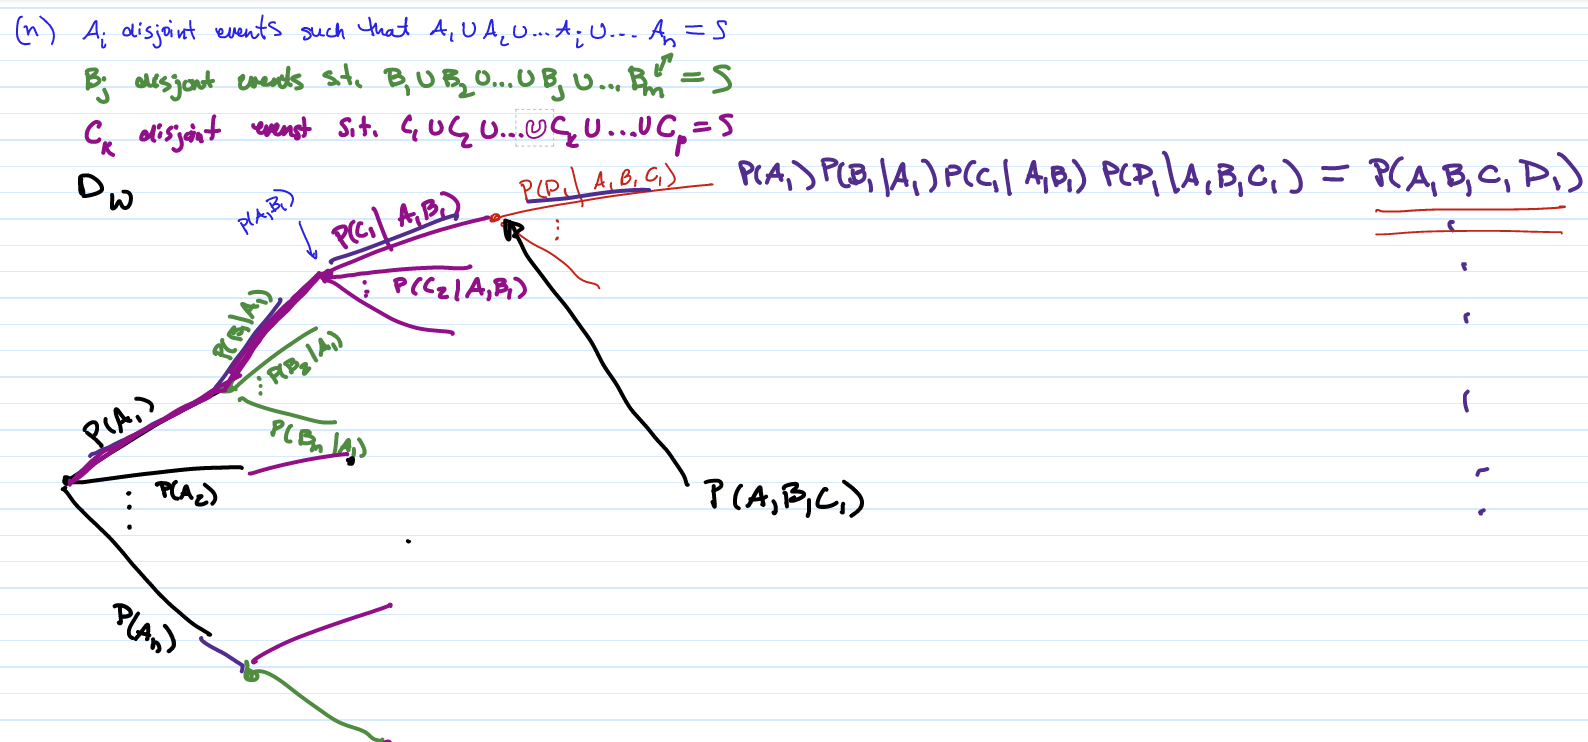 (n) Aᵢ disjoint events such that A₁ ∪ A₂ ∪ ... Aᵢ ∪ ... Aₙ = S
Bⱼ disjoint events s.t. B₁ ∪ B₂ ∪ ... ∪ Bⱼ ∪ ... Bₘ = S
Cₖ disjoint evenst s.t. C₁ ∪ C₂ ∪ ... ∪ Cₖ ∪ ... ∪ Cₚ = S
D_w
P(A₁)P(B₁|A₁)P(C₁|A₁B₁)P(D₁|A₁B₁C₁) = P(A₁B₁C₁D₁)
P(D₁|A₁B₁C₁)
P(A₁B₁)
P(C₁|A₁B₁)
P(C₂|A₁B₁)
P(B₁|A₁)
P(B₂|A₁)
P(A₁)
P(Bₘ|A₁)
P(A₂)
P(A₁B₁C₁)
P(Aₙ)